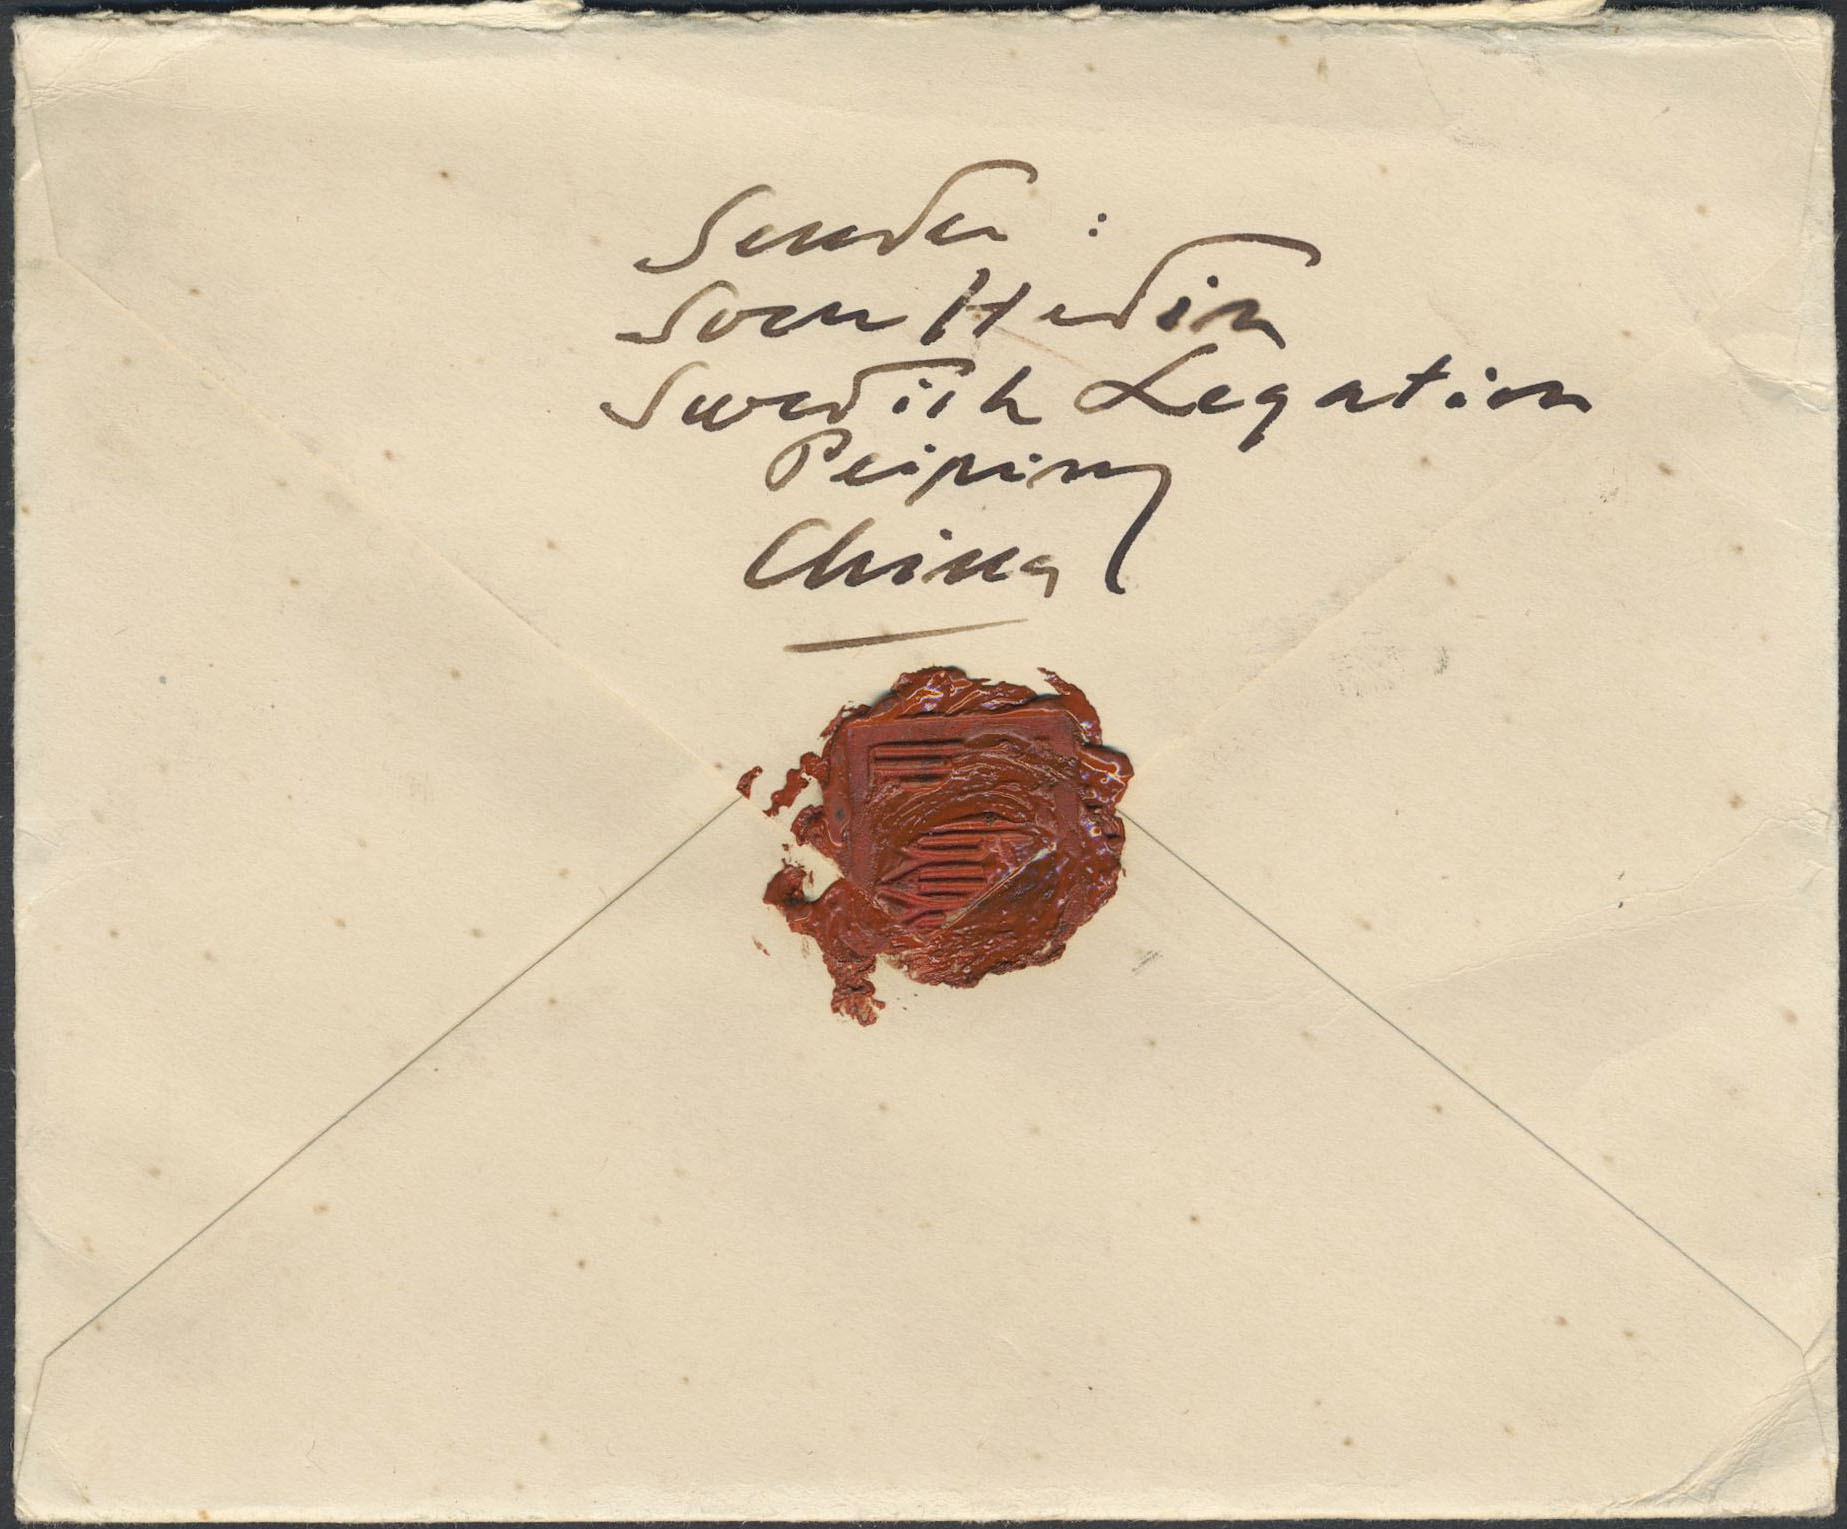 Sender :
Sven Hedin
Swedish Legation
Peiping
China